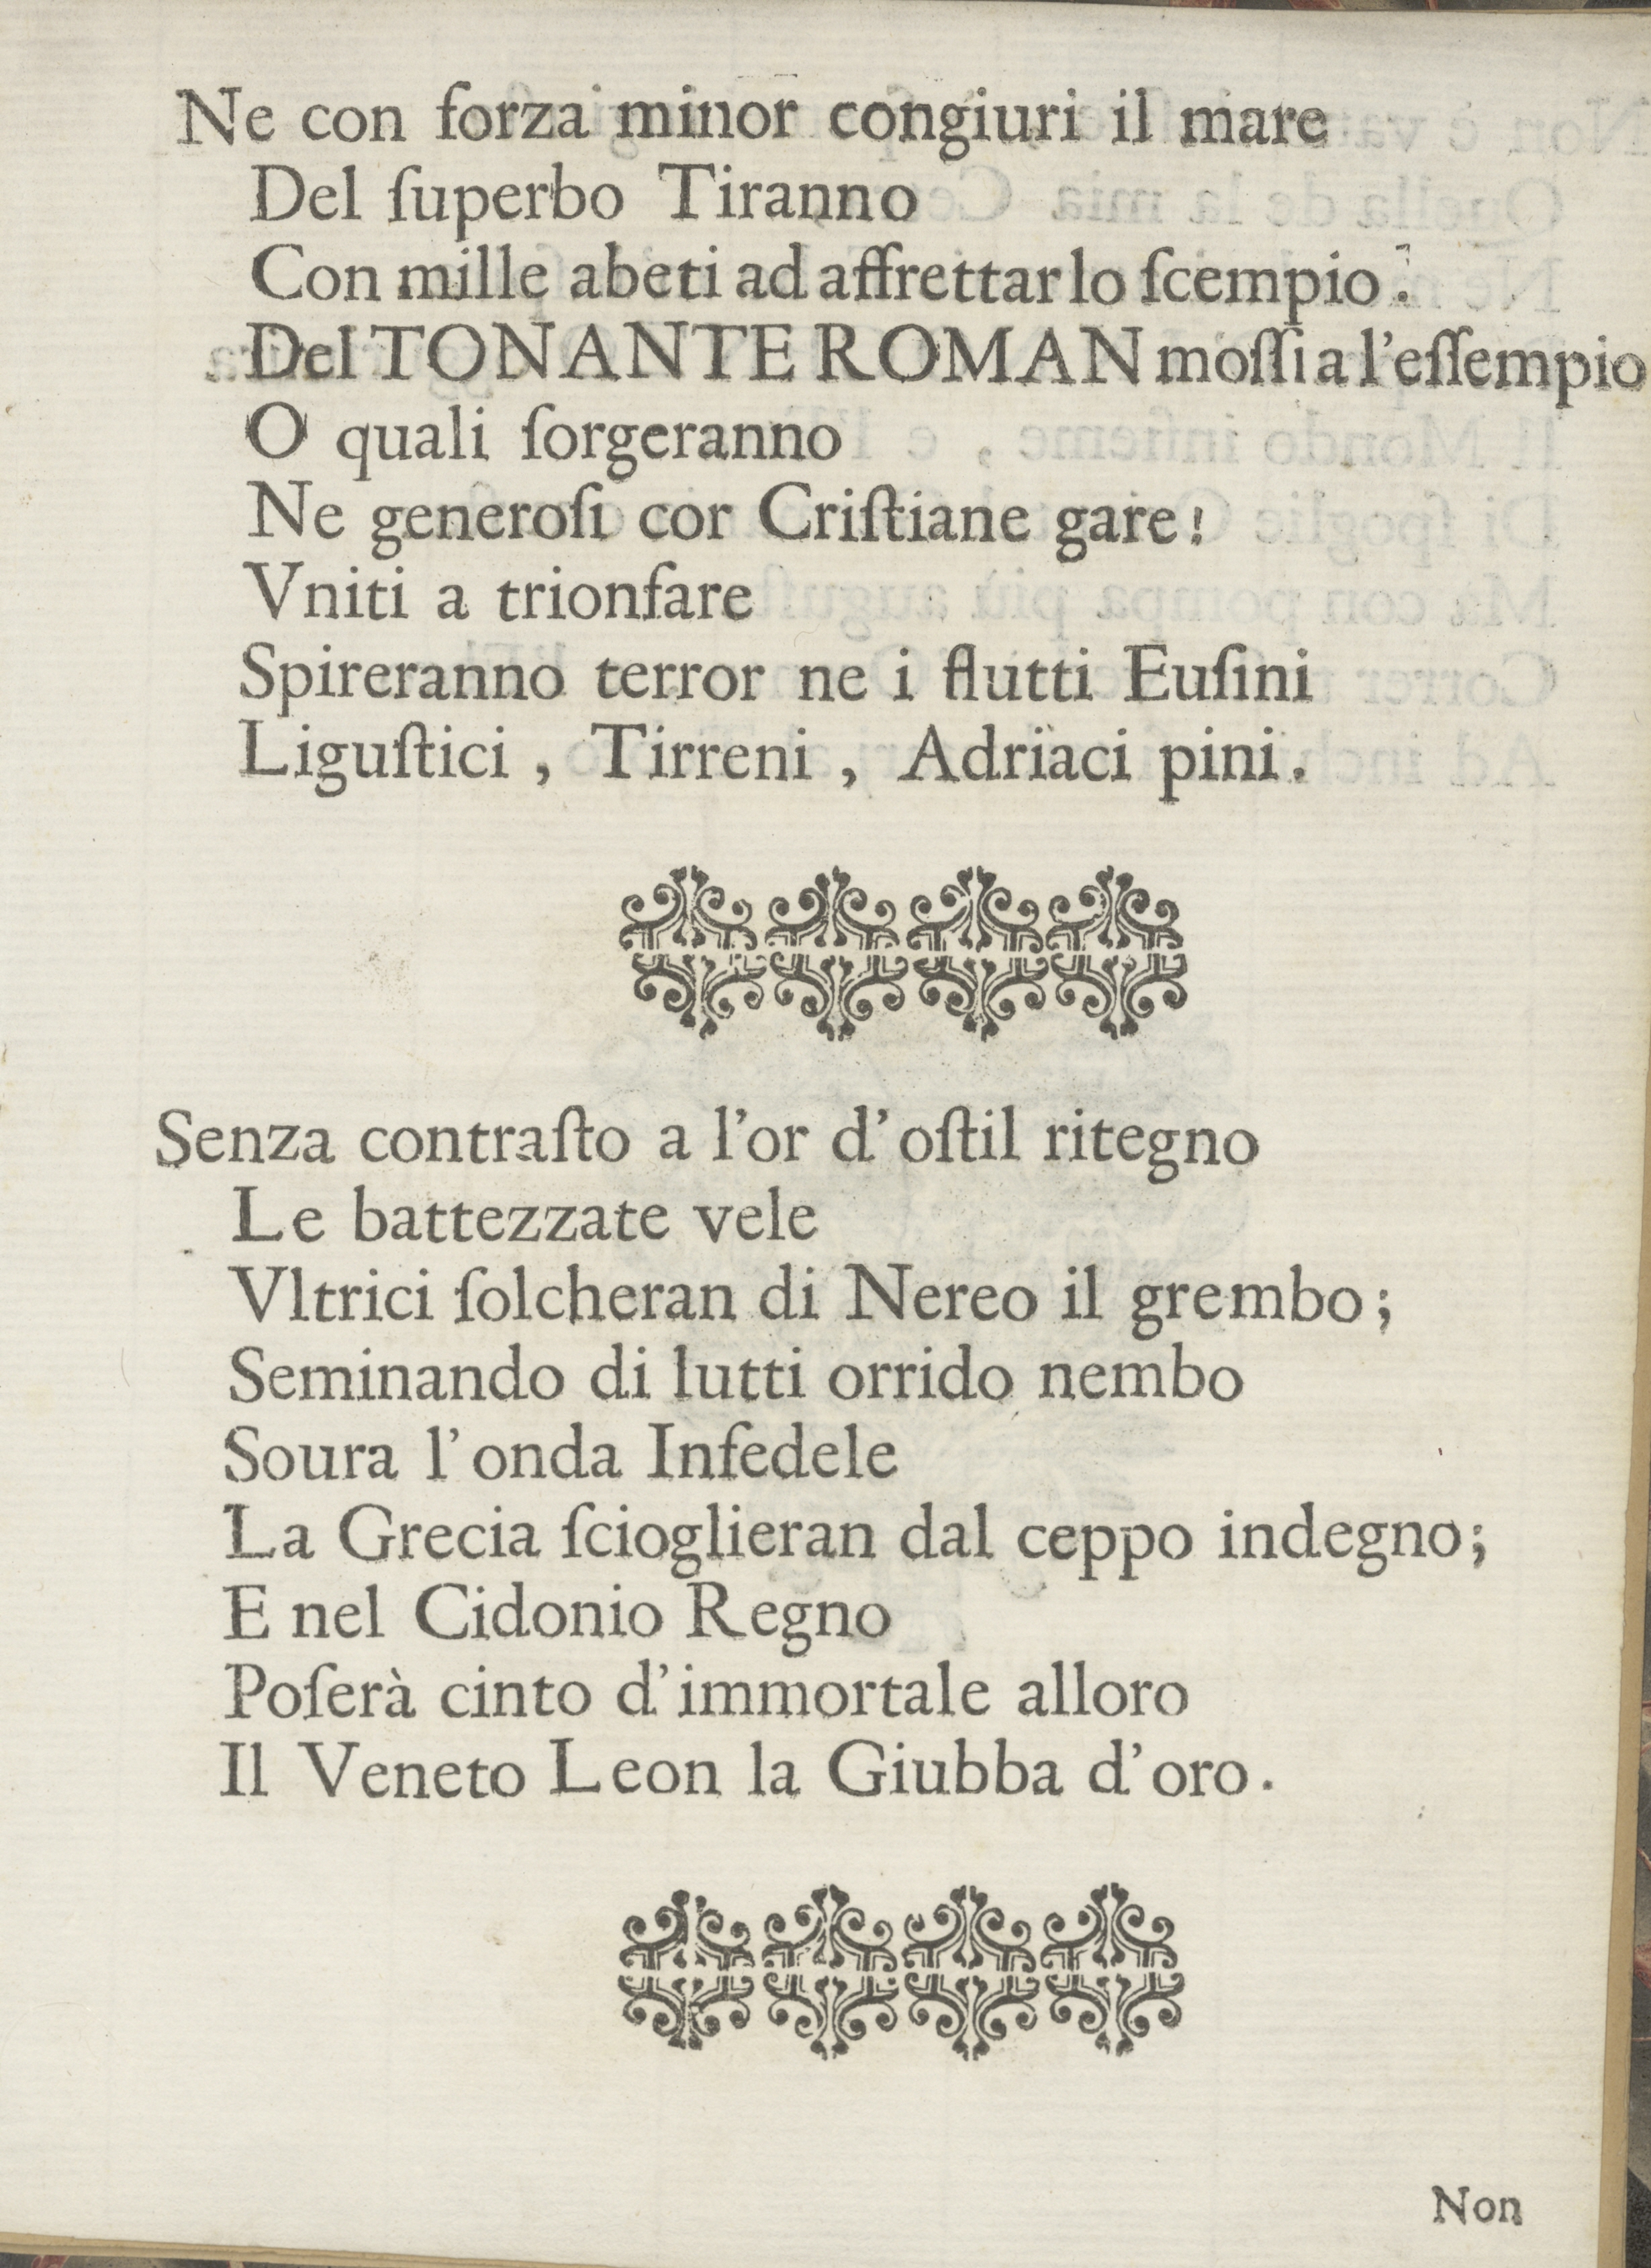 Ne con forza minor congiuri il mare
Del ſuperbo Tiranno
Con mille abeti ad affrettar lo ſcempio.
Del TONANTE ROMAN moſſi a l'eſſempio
O quali ſorgeranno
Ne generoſi cor Criſtiane gare!
Vniti a trionfare
Spireranno terror ne i flutti Euſini
Liguſtici, Tirreni, Adriaci pini.
Senza contraſto a l'or d'oſtil ritegno
Le battezzate vele
Vltrici ſolcheran di Nereo il grembo;
Seminando di lutti orrido nembo
Soura l'onda Infedele
La Grecia ſcioglieran dal ceppo indegno;
E nel Cidonio Regno
Poſerà cinto d'immortale alloro
Il Veneto Leon la Giubba d'oro.
Non